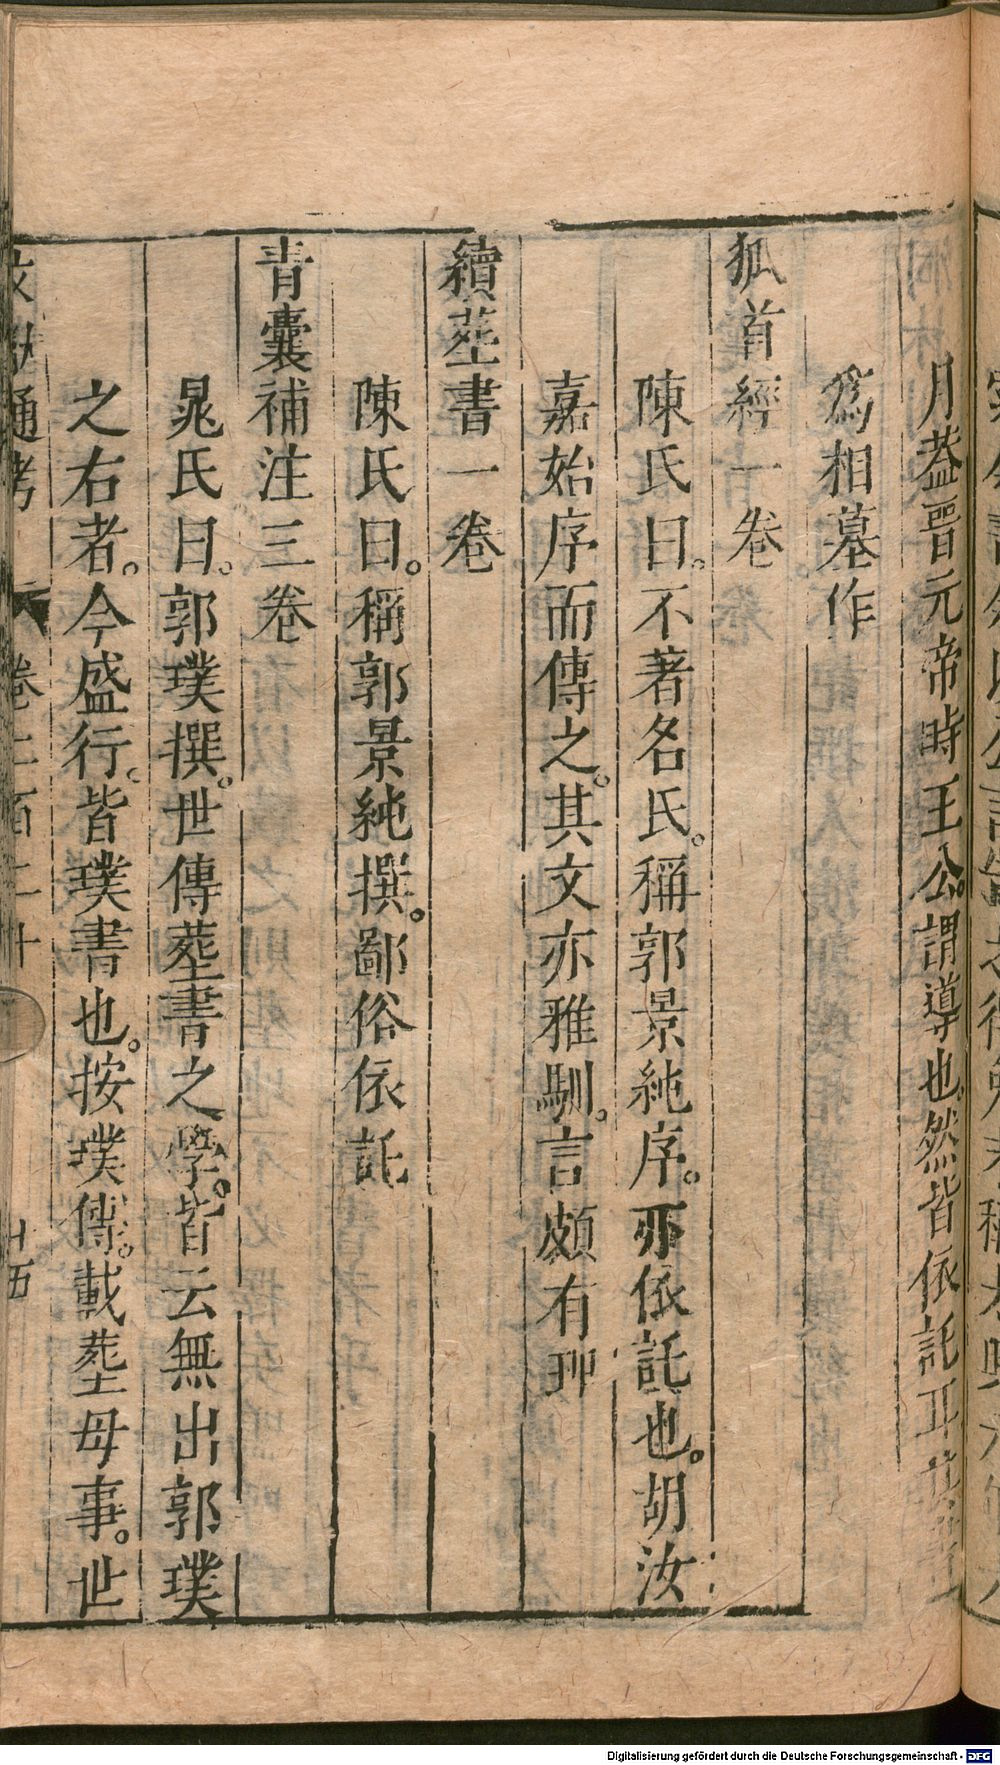 月葢晉元帝時王公謂導也然皆依託耳
為相墓作
狐首經一卷
陳氏曰不著名氏稱郭景純序亦依託也胡汝
嘉始序而傳之其文亦雅馴言頗有理
續葬書一卷
陳氏曰稱郭景純撰鄙俗依託
青囊補注三卷
晁氏曰郭璞撰世傳葬書之學皆云無出郭璞
之右者今盛行皆璞書也按璞傳載葬母事世
文獻通考 卷二百二十 廿五
Digitalisierung gefördert durch die Deutsche Forschungsgemeinschaft - DFG